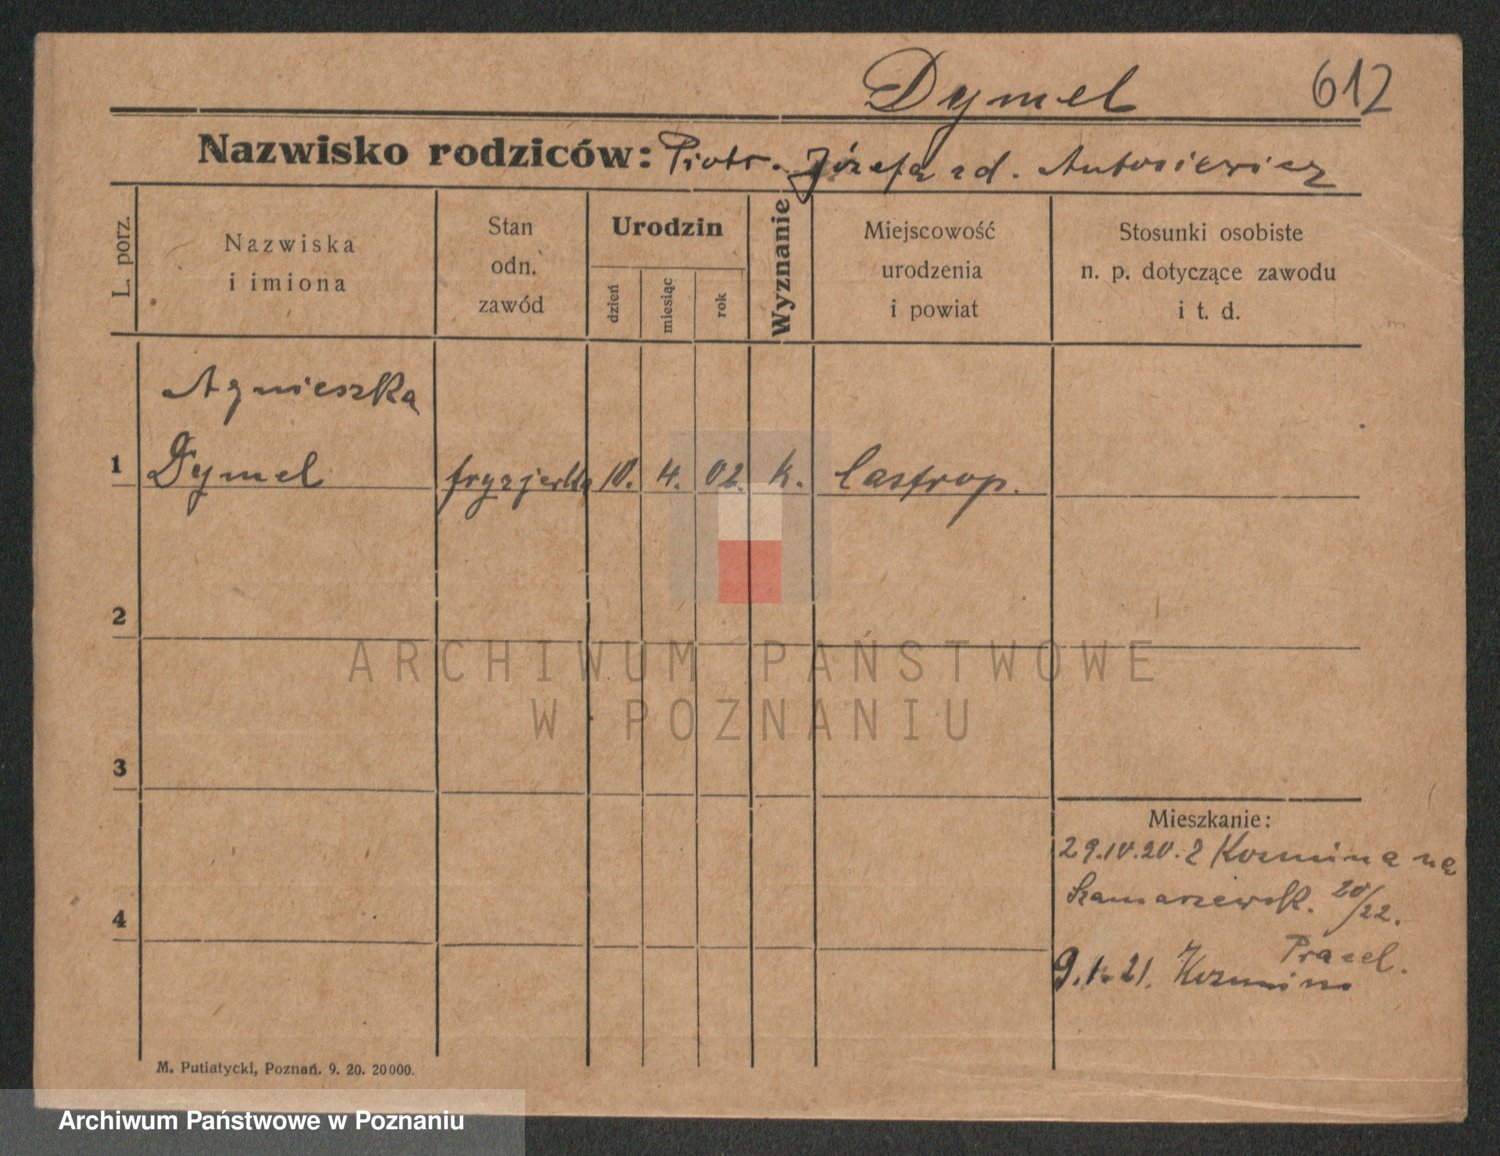 Dymel 612
Nazwisko rodziców: Piotr. Józefa zd. Antosiewicz
L. porz.
Nazwiska
i imiona
Stan
odn.
zawód
Urodzin
dzień
miesiąc
rok
Wyznanie
Miejscowość
urodzenia
i powiat
Stosunki osobiste
n. p. dotyczące zawodu
i t. d.
Agnieszka
1 Dymel fryzjerka 10. 4. 02. k. Castrop.
2
ARCHIWUM PAŃSTWOWE
W POZNANIU
3
Mieszkanie:
29.10.20. z Kozmina na
Szamarzewsk. 20/22.
4
Pracel.
9.1.21. Kozmin
M. Putiatycki, Poznań. 9. 20. 20000.
Archiwum Państwowe w Poznaniu